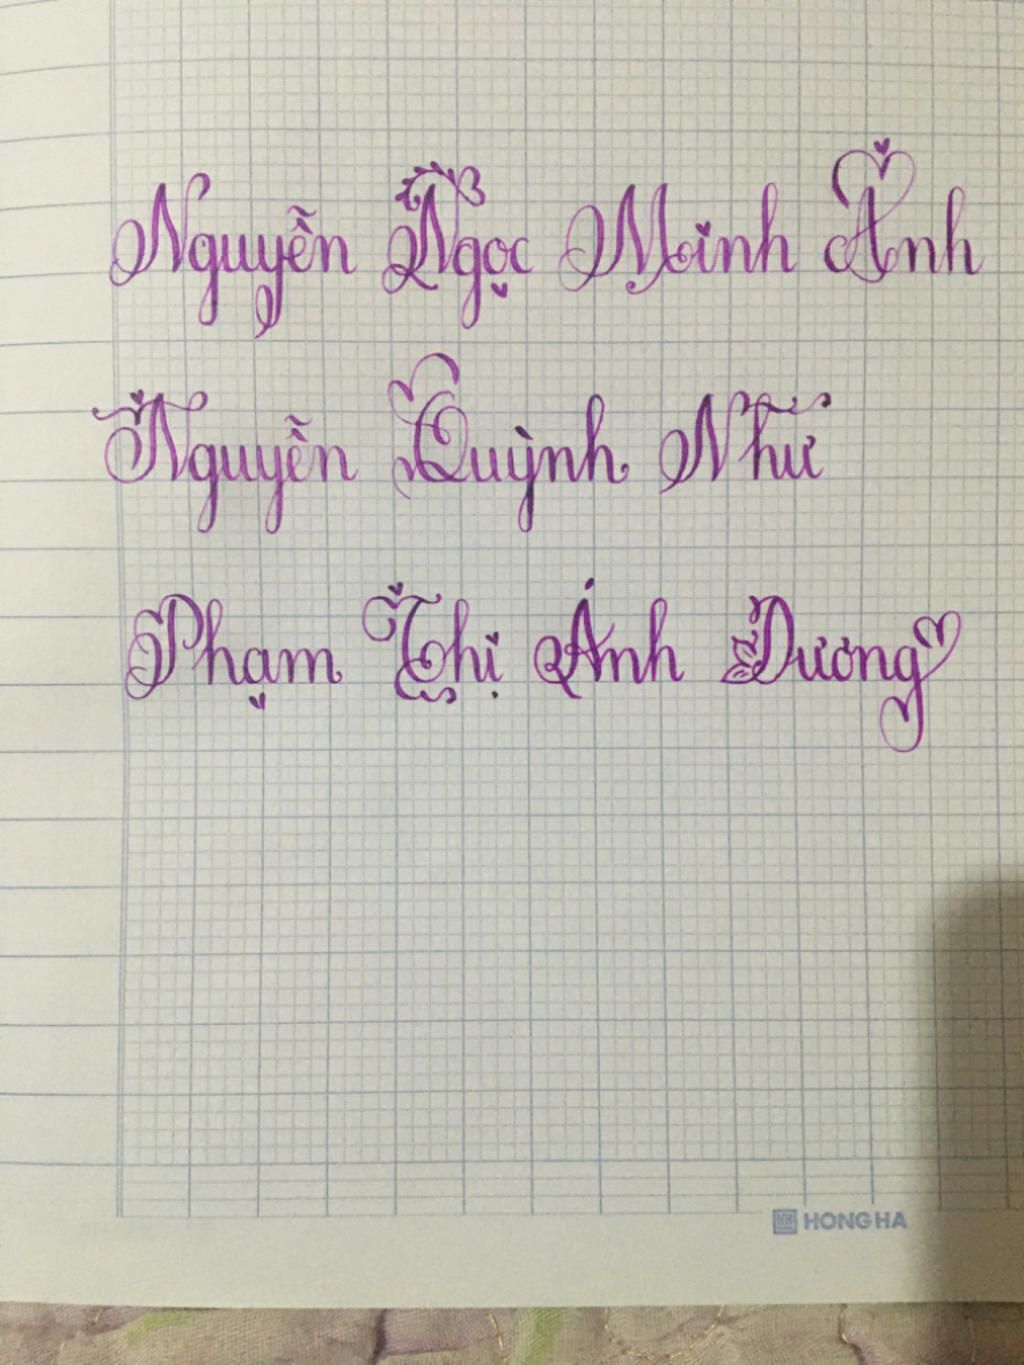 Nguyễn Ngọc Minh Ánh
Nguyễn Quỳnh Như
Phạm Thị Ánh Dương
HONG HA